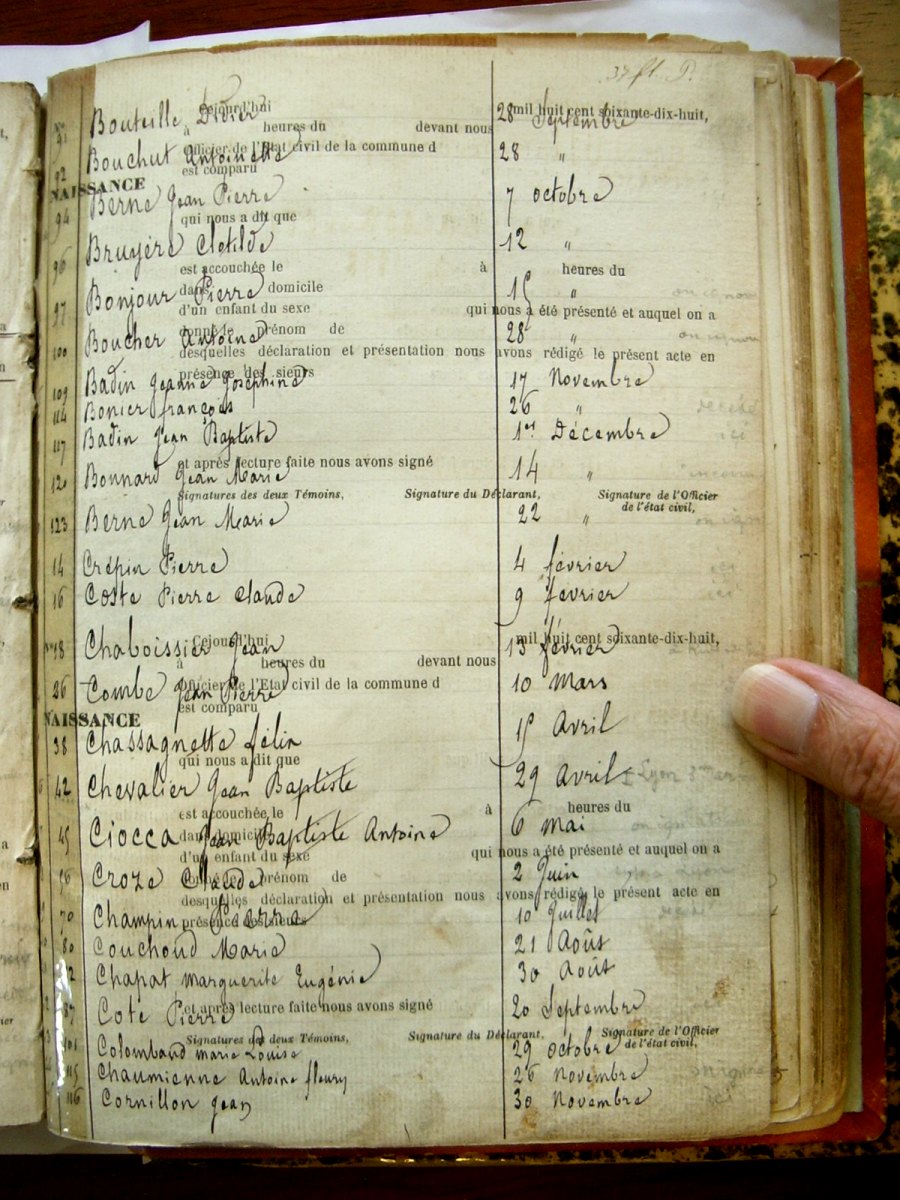 37 ft. P.
Cejourd'hui mil huit cent soixante-dix-huit,
N° 91 Bouteille Didier 28 Septembre
à heures du devant nous
92 Bouchut Antoinette 28 "
Officier de l'Etat civil de la commune d
est comparu
NAISSANCE
94 Berne Jean Pierre 7 octobre
qui nous a dit que
96 Bruyère Clotilde 12 "
est accouchée le à heures du
97 Bonjour Pierre 15 "
dans domicile
d'un enfant du sexe qui nous a été présenté et auquel on a
100 Boucher Antoine 28 "
donné le prénom de
desquelles déclaration et présentation nous avons rédigé le présent acte en
présence des sieurs
109 Badin Jeanne Joséphine 17 Novembre
114 Bonier françois 26 "
117 Badin Jean Baptiste 1er Décembre
et après lecture faite nous avons signé
120 Bonnard Jean Marie 14 "
Signatures des deux Témoins, Signature du Déclarant, Signature de l'Officier
de l'état civil,
123 Berne Jean Marie 22 "
14 Crépin Pierre 4 février
16 Coste Pierre Claude 9 février
Cejourd'hui mil huit cent soixante-dix-huit,
N° 18 Chaboissier Jean 13 février
à heures du devant nous
26 Combe Jean Pierre 10 Mars
Officier de l'Etat civil de la commune d
est comparu
NAISSANCE
38 Chassagnette félix 15 Avril
qui nous a dit que
42 Chevalier Jean Baptiste 29 Avril Lyon
est accouchée le à heures du
45 Ciocca Jean Baptiste Antoine 6 Mai
dans domicile
d'un enfant du sexe qui nous a été présenté et auquel on a
Croze Claude 2 Juin
donné le prénom de
desquelles déclaration et présentation nous avons rédigé le présent acte en
70 Champin Pierre 10 Juillet
présence des sieurs
80 Couchoud Marie 21 Août
Chapat Marguerite Eugénie 30 Août
87 Cote Pierre 20 Septembre
et après lecture faite nous avons signé
Signatures des deux Témoins, Signature du Déclarant, Signature de l'Officier
de l'état civil,
101 Colombaud Marie Louise 29 octobre
115 Chaumienne Antoine fleury 26 Novembre
116 Cornillon Jean 30 Novembre